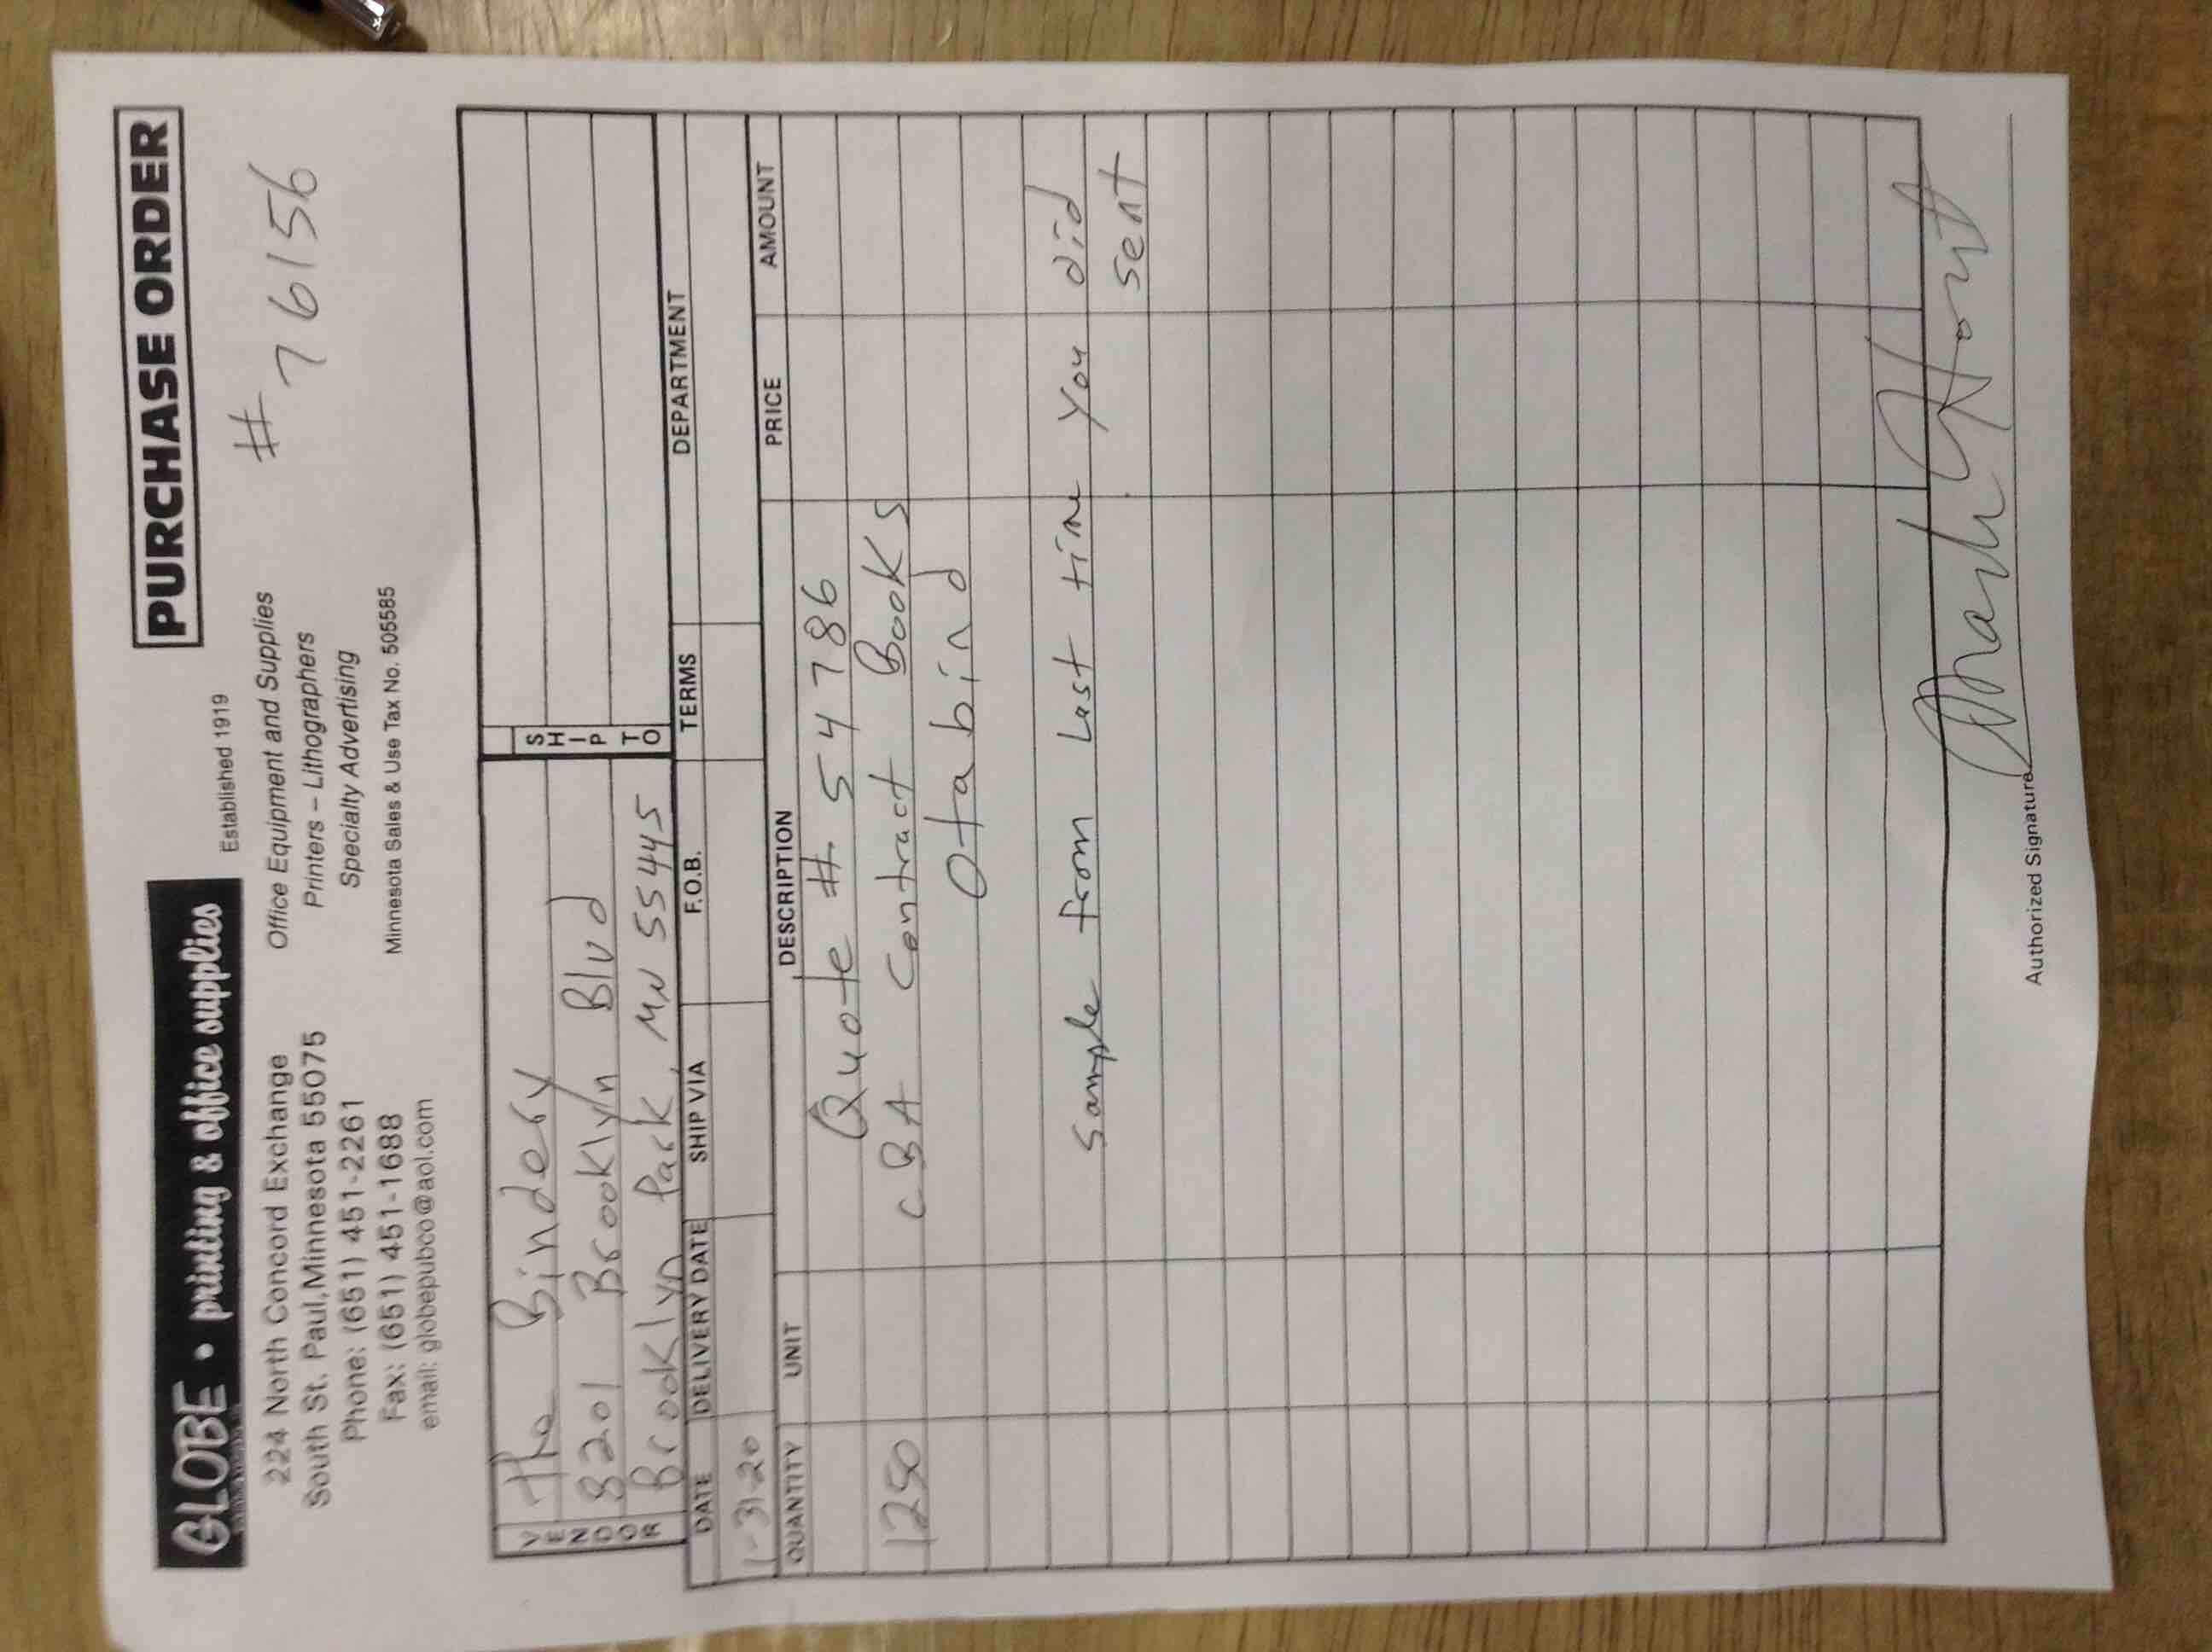 GLOBE • printing & office supplies
PURCHASE ORDER
Established 1919
224 North Concord Exchange
South St. Paul, Minnesota 55075
Phone: (651) 451-2261
Fax: (651) 451-1688
email: globepubco@aol.com
Office Equipment and Supplies
Printers – Lithographers
Specialty Advertising
Minnesota Sales & Use Tax No. 505585
# 76156
VENDOR
The Bindery
8201 Brooklyn Blvd
Brooklyn Park, MN 55445
SHIP TO
DATE DELIVERY DATE SHIP VIA F.O.B. TERMS DEPARTMENT
1-31-20
QUANTITY UNIT DESCRIPTION PRICE AMOUNT
Quote # 54786
1250 CBA Contract Books
Otabind
Sample from last time you did
sent
Authorized Signature